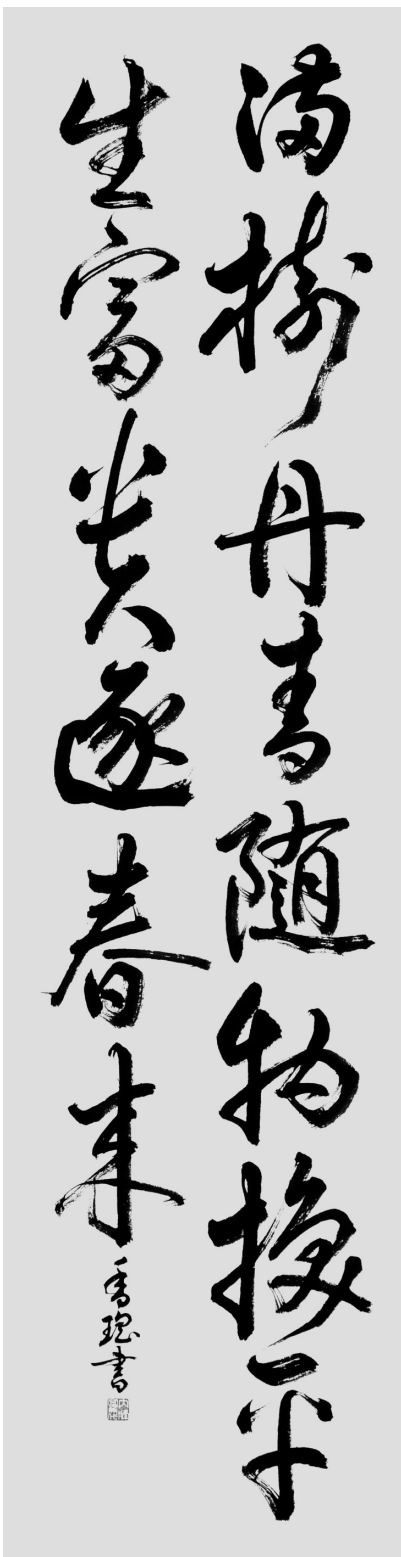 満樹丹青随物換平
生富貴逐春来
香琼書